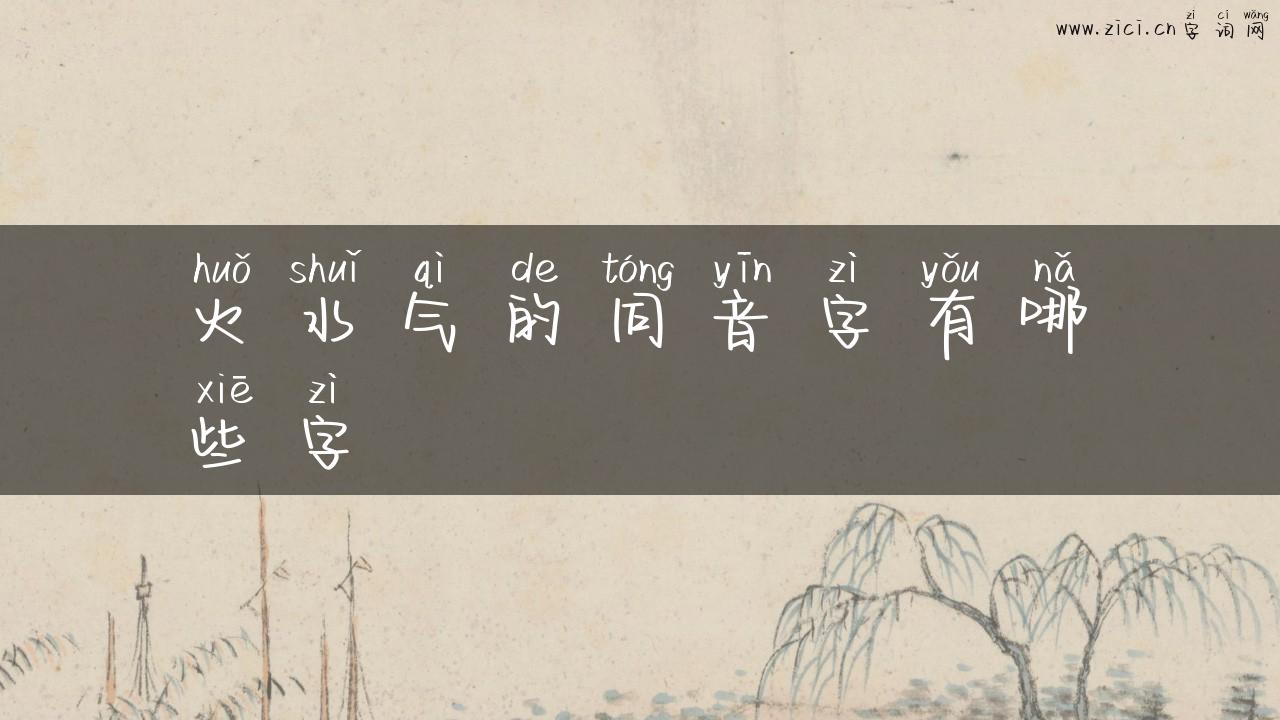 www.zici.cn zì cí wǎng
字词网
huǒ shuǐ qì de tóng yīn zì yǒu nǎ
火水气的同音字有哪
xiē zì
些字